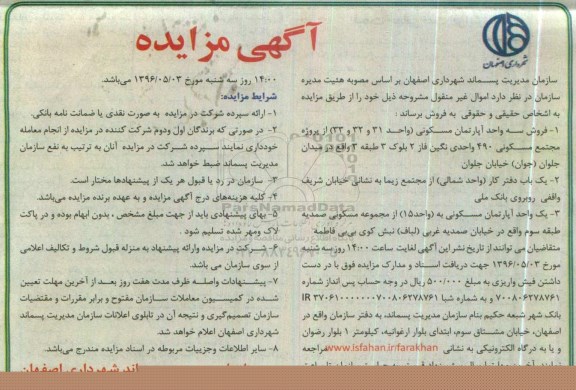 آگهی مزایده
شهرداری اصفهان
سازمان مدیریت پسماند شهرداری اصفهان بر اساس مصوبه هئیت مدیره
سازمان در نظر دارد اموال غیر منقول مشروحه ذیل خود را از طریق مزایده
به اشخاص حقیقی و حقوقی به فروش برساند :
۱- فروش سه واحد آپارتمان مسکونی (واحد ۳۱ و ۳۲ و ۳۳) از پروژه
مجتمع مسکونی ۴۹۰ واحدی نگین فاز ۲ بلوک ۳ طبقه ۳ واقع در میدان
جلوان (جوان) خیابان جلوان
۲- یک باب دفتر کار (واحد شمالی) از مجتمع زیما به نشانی خیابان شریف
واقفی روبروی بانک ملی
۳- یک واحد آپارتمان مسکونی به (واحد۱۵) از مجموعه مسکونی صمدیه
طبقه سوم واقع در خیابان صمدیه غربی (لباف) نبش کوی بی‌بی فاطمه
متقاضیان می توانند از تاریخ نشر این آگهی لغایت ساعت ۱۴:۰۰ روز سه شنبه
مورخ ۱۳۹۶/۰۵/۰۳ جهت دریافت اسناد و مدارک مزایده فوق با در دست
داشتن فیش واریزی به مبلغ ۵۰۰/۰۰۰ ریال در وجه حساب پس انداز شماره
۷۰۰۸۰۶۲۷۸۷۶۱ و به شماره شبا IR ۳۷۰۶۱۰۰۰۰۰۰۰۷۰۰۸۰۶۲۷۸۷۶۱
بانک شهر شعبه حکیم بنام سازمان مدیریت پسماند، به دفتر سازمان واقع در
اصفهان، خیابان مشتاق سوم، ابتدای بلوار ارغوانیه، کیلومتر ۱ بلوار رضوان
و یا به درگاه الکترونیکی به نشانی www.isfahan.ir/farakhan مراجعه
۱۴:۰۰ روز سه شنبه مورخ ۱۳۹۶/۰۵/۰۳ می‌باشد.
شرایط مزایده:
۱- ارائه سپرده شرکت در مزایده به صورت نقدی یا ضمانت نامه بانکی.
۲- در صورتی که برندگان اول ودوم شرکت کننده در مزایده از انجام معامله
خودداری نمایند سپرده شرکت در مزایده آنان به ترتیب به نفع سازمان
مدیریت پسماند ضبط خواهد شد.
۳- سازمان در رد یا قبول هر یک از پیشنهادها مختار است.
۴- کلیه هزینه‌های درج آگهی مزایده و به عهده برنده مزایده می‌باشد.
۵- بهای پیشنهادی باید از جهت مبلغ مشخص ، بدون ابهام بوده و در پاکت
لاک ومهر شده تسلیم شود .
۶- شرکت در مزایده وارائه پیشنهاد به منزله قبول شروط و تکالیف اعلامی
از سوی سازمان می باشد.
۷- پیشنهادات واصله ظرف مدت هفت روز بعد از آخرین مهلت تعیین
شده در کمیسیون معاملات سازمان مفتوح و برابر مقررات و مقتضیات
سازمان تصمیم‌گیری و نتیجه آن در تابلوی اعلانات سازمان مدیریت پسماند
شهرداری اصفهان اعلام خواهد شد.
۸- سایر اطلاعات وجزییات مربوطه در اسناد مزایده مندرج می‌باشد.
ParsNamadData